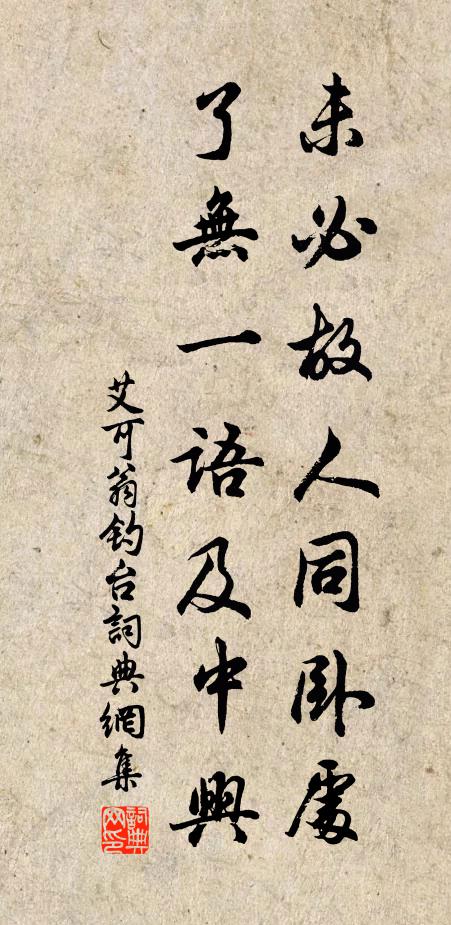 未必故人同卧處
了無一語及中興
艾可翁釣台詞典網集
詞典网印